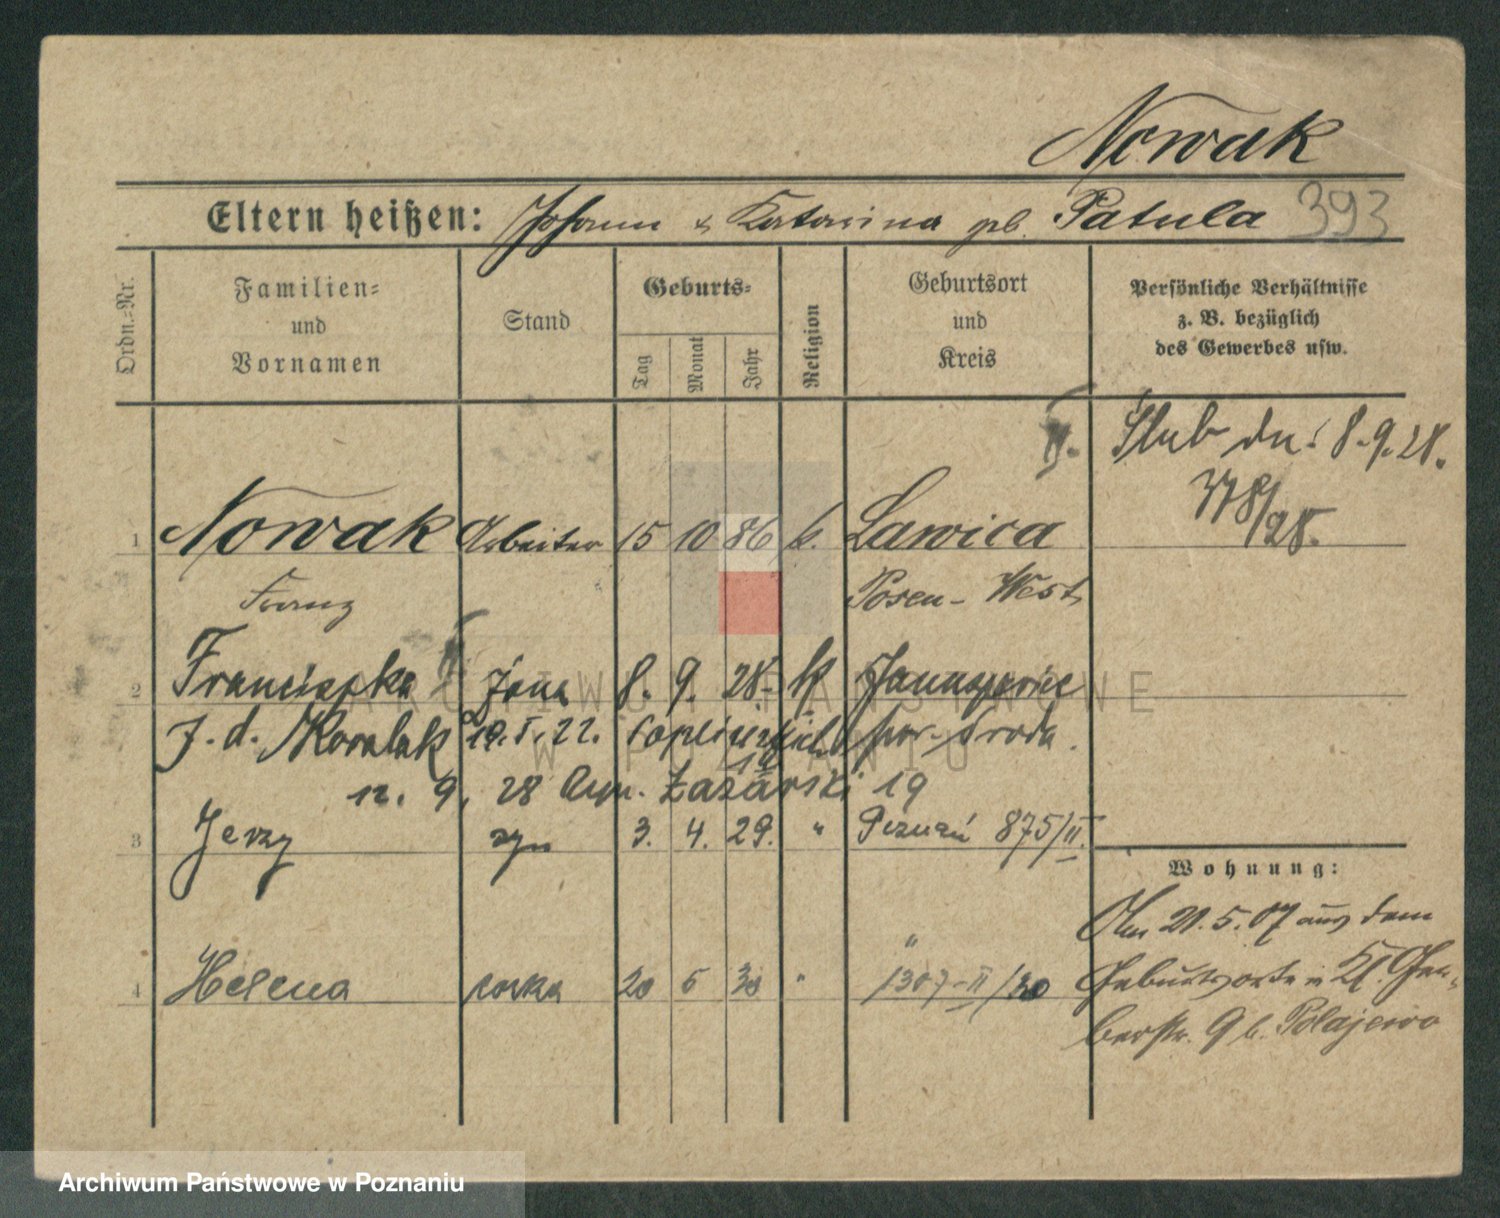 Nowak
Eltern heißen: Johann & Katarina geb. Patula 393
Ordn.-Nr.
Familien-
und
Vornamen
Stand
Geburts-
Tag
Monat
Jahr
Religion
Geburtsort
und
Kreis
Persönliche Verhältnisse
z. B. bezüglich
des Gewerbes usw.
II. Ślub dn. 8.9.28.
378/28.
1 Nowak Arbeiter 15 10 86 k. Lawica
Franz Posen-West
2 Franciszka żona 8. 9. 28. k
z d. 10.I.22. pow. Środa.
12. 9. 28 Łazarski 19
3 Jerzy syn 3. 4. 29. " Poznań 875/II.
Wohnung:
Am 21.5.07 aus dem
"
4 Helena corka 20 6 30 " 1307-II/30
Geburtsorte n Kl. Ger-
berstr. 9 b. Polajewo
ARCHIWUM PAŃSTWOWE
W POZNANIU
Archiwum Państwowe w Poznaniu